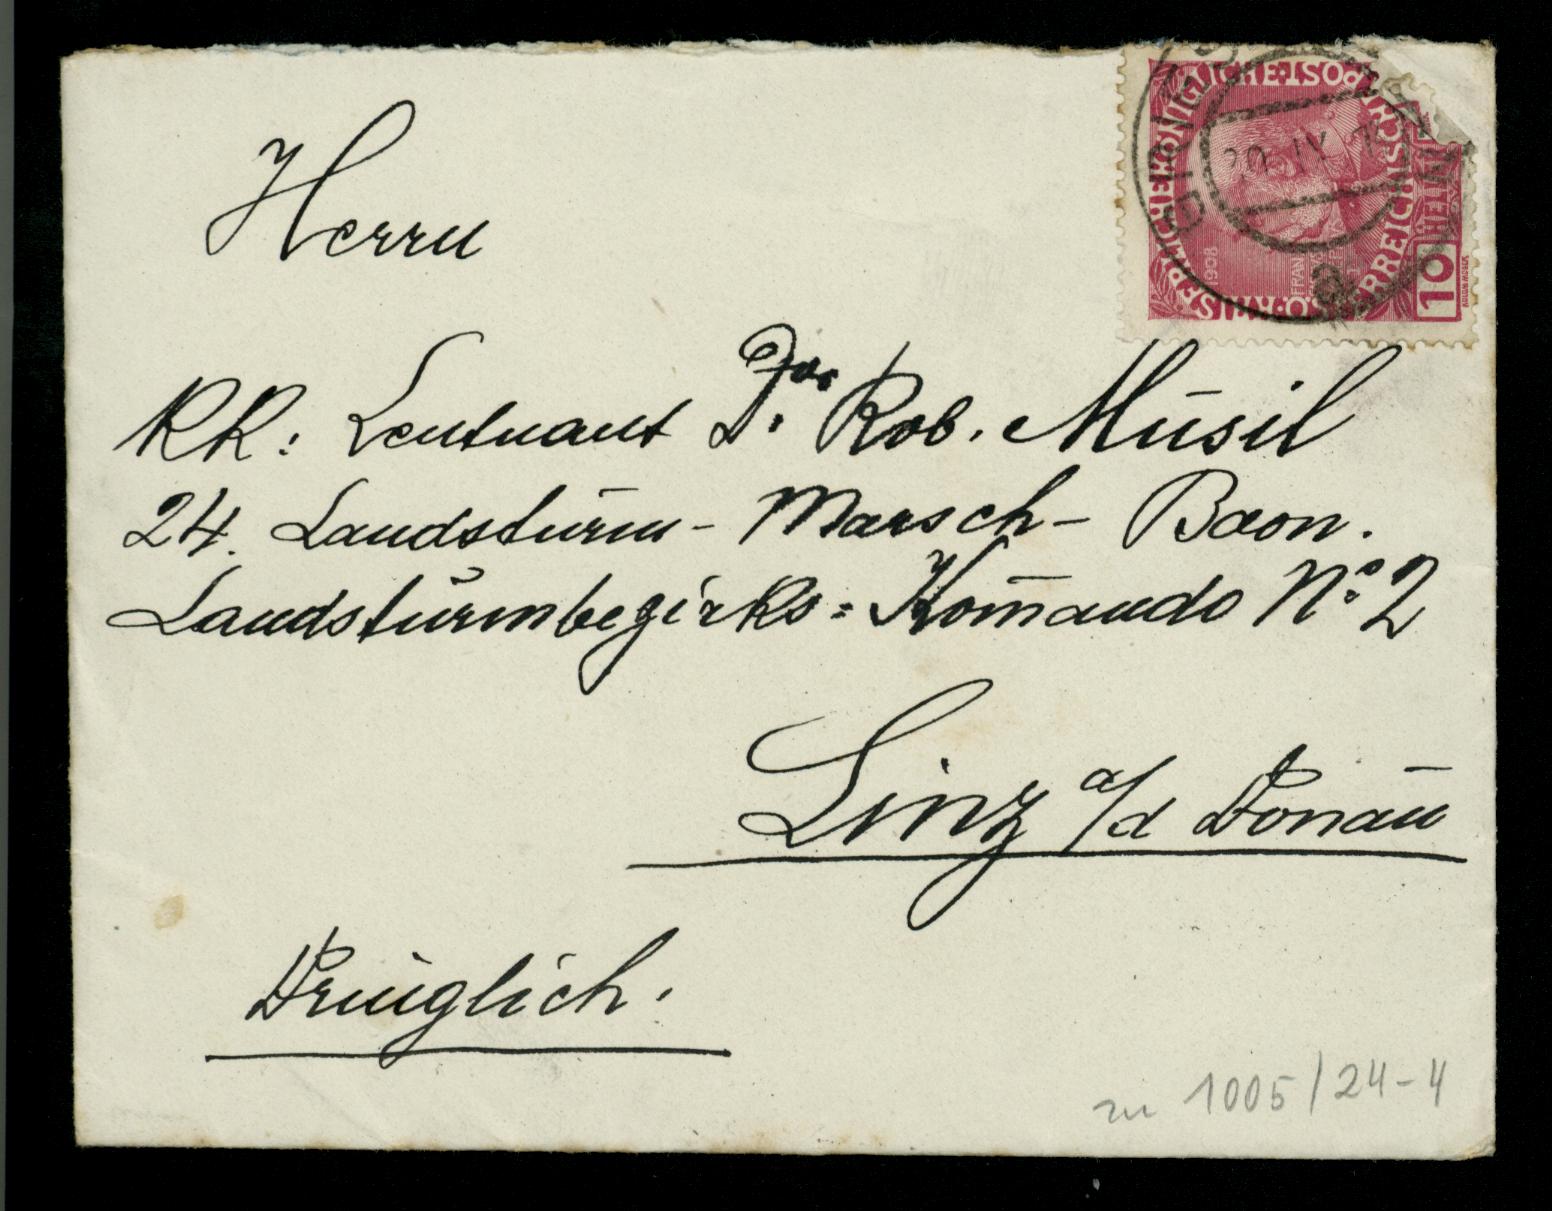 Herrn
KK: Leutnant Dr. Rob. Musil
24. Landsturm- Marsch- Baon.
Landsturmbezirks = Kom̄ando No. 2
Linz a/d Donau
Dringlich.
zu 1005/24-4
KAISERLICHE KÖNIGLICHE ÖSTERREICHISCHE POST
1908
FRANZ
10 HELLER
20 IX